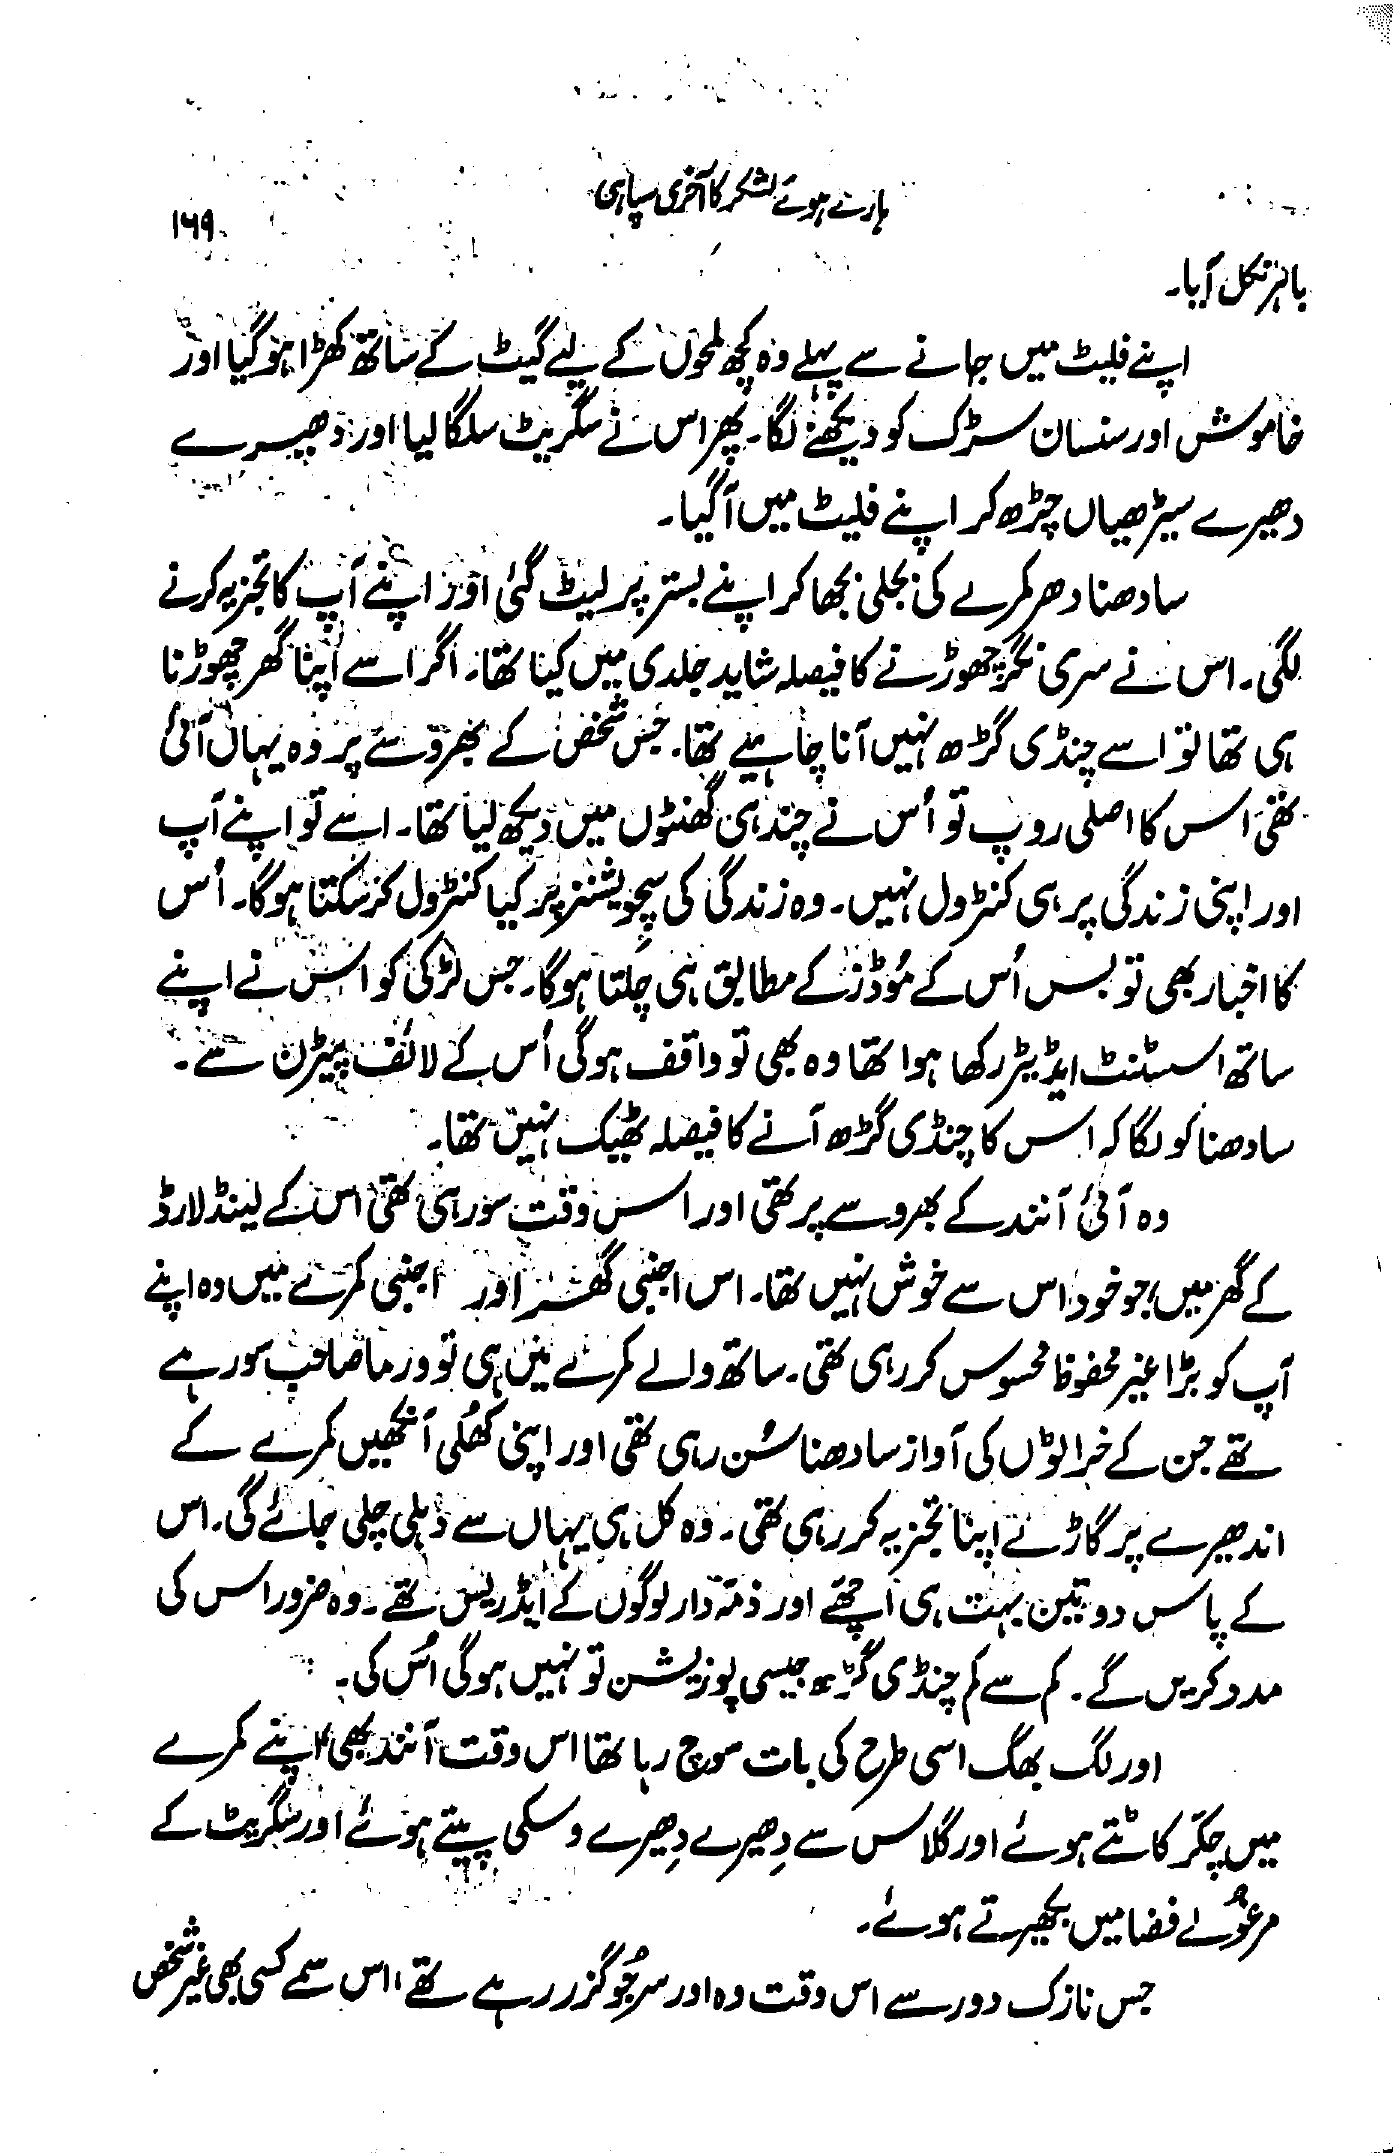 ہارے ہوئے لشکر کا آخری سپاہی
۱۶۹
باہر نکل آیا۔
اپنے فلیٹ میں جانے سے پہلے وہ کچھ لمحوں کے لیے گیٹ کے ساتھ کھڑا ہو گیا اور
خاموش اور سنسان سڑک کو دیکھنے لگا۔ پھر اس نے سگریٹ سلگا لیا اور دھیرے
دھیرے سیڑھیاں چڑھ کر اپنے فلیٹ میں آ گیا۔
سادھنا ادھر کمرے کی بجلی بجھا کر اپنے بستر پر لیٹ گئی اور اپنے آپ کا تجزیہ کرنے
لگی۔ اس نے سری نگر چھوڑنے کا فیصلہ شاید جلدی میں کیا تھا۔ اگر اسے اپنا گھر چھوڑنا
ہی تھا تو اسے چنڈی گڑھ نہیں آنا چاہیے تھا۔ جس شخص کے بھروسے پر وہ یہاں آئی
تھی اس کا اصلی روپ تو اُس نے چند ہی گھنٹوں میں دیکھ لیا تھا۔ اسے تو اپنے آپ
اور اپنی زندگی پر ہی کنٹرول نہیں۔ وہ زندگی کی سچویشنز پر کیا کنٹرول کر سکتا ہوگا۔ اُس
کا اخبار بھی تو بس اُس کے مُوڈز کے مطابق ہی چلتا ہوگا۔ جس لڑکی کو اس نے اپنے
ساتھ اسسٹنٹ ایڈیٹر رکھا ہوا تھا وہ بھی تو واقف ہوگی اُس کے لائف پیٹرن سے۔
سادھنا کو لگا کہ اس کا چنڈی گڑھ آنے کا فیصلہ ٹھیک نہیں تھا۔
وہ آئی آنند کے بھروسے پر تھی اور اس وقت سو رہی تھی اس کے لینڈ لارڈ
کے گھر میں، جو خود اس سے خوش نہیں تھا۔ اس اجنبی گھر اور اجنبی کمرے میں وہ اپنے
آپ کو بڑا غیر محفوظ محسوس کر رہی تھی۔ ساتھ والے کمرے میں ہی تو ورما صاحب سو رہے
تھے جن کے خراٹوں کی آواز سادھنا سُن رہی تھی اور اپنی کھُلی آنکھیں کمرے کے
اندھیرے پر گاڑے اپنا تجزیہ کر رہی تھی۔ وہ کل ہی یہاں سے دہلی چلی جائے گی۔ اس
کے پاس دو تین بہت ہی اچھے اور ذمّہ دار لوگوں کے ایڈریس تھے۔ وہ ضرور اس کی
مدد کریں گے۔ کم سے کم چنڈی گڑھ جیسی پوزیشن تو نہیں ہوگی اُس کی۔
اور لگ بھگ اسی طرح کی بات سوچ رہا تھا اس وقت آنند بھی اپنے کمرے
میں چکّر کاٹتے ہوئے اور گلاس سے دِھیرے دِھیرے وسکی پیتے ہوئے اور سگریٹ کے
مرغُولے فضا میں بکھیرتے ہوئے۔
جس نازک دور سے اس وقت وہ اور سرجُو گزر رہے تھے، اس سمے کسی بھی غیر شخص